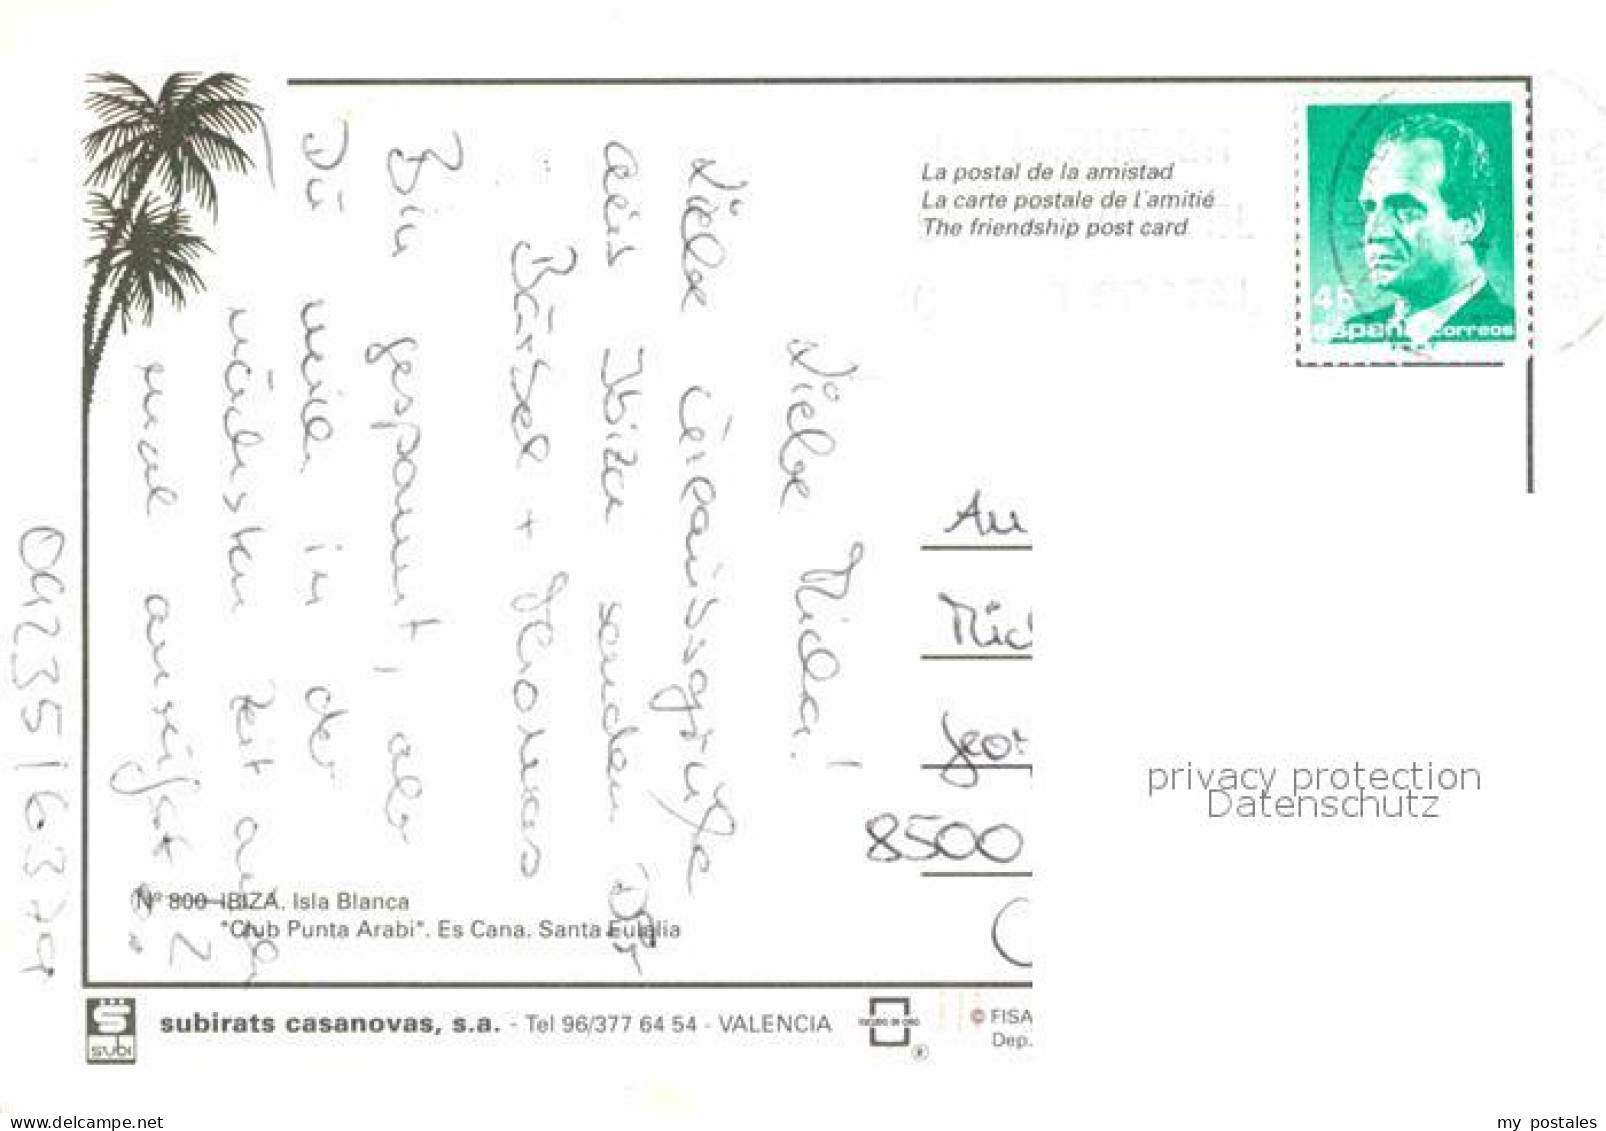 La postal de la amistad
La carte postale de l'amitié
The friendship post card
45
españa correos
Liebe Micha!
Liebe Urlaubsgrüße
aus Ibiza senden Dir
Bärbel + Thomas
Bin gespannt, ob
Du mich in der
nächsten Zeit auch
mal anrufst?
09235/6379
An
Mic
Geor
8500
Nº 800 IBIZA. Isla Blanca
"Club Punta Arabi". Es Cana. Santa Eulalia
subi
subirats casanovas, s.a. - Tel 96/377 64 54 - VALENCIA
ESCUDO DE ORO
®
© FISA
Dep.
privacy protection
Datenschutz
www.delcampe.net
my postales